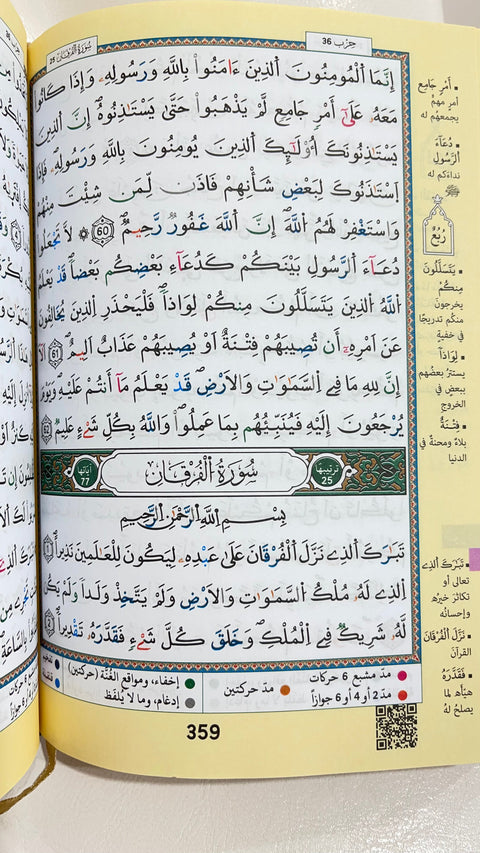 حِزْب 36
سُورَةُ الْفُرْقَان 25
إِنَّمَا اَ۬لْمُومِنُونَ اَ۬لذِينَ ءَامَنُواْ بِاللَّهِ وَرَسُولِهِۦ وَإِذَا كَانُواْ
مَعَهُۥ عَلَىٰٓ أَمْرٖ جَامِعٖ لَّمْ يَذْهَبُواْ حَتَّىٰ يَسْتَٰذِنُوهُۖ إِنَّ اَ۬لذِينَ
يَسْتَٰذِنُونَكَ أُوْلَٰٓئِكَ اَ۬لذِينَ يُومِنُونَ بِاللَّهِ وَرَسُولِهِۦۖ فَإِذَا
اَ۪سْتَٰذَنُوكَ لِبَعْضِ شَأْنِهِمْ فَاذَن لِّمَن شِئْتَ مِنْهُمْ
وَاسْتَغْفِرْ لَهُمُ اُ۬للَّهَۖ إِنَّ اَ۬للَّهَ غَفُورٞ رَّحِيمٞۖ 60 لَّا تَجْعَلُواْ
دُعَآءَ اَ۬لرَّسُولِ بَيْنَكُمْ كَدُعَآءِ بَعْضِكُم بَعْضاٗۖ قَدْ يَعْلَمُ
اُ۬للَّهُ اُ۬لذِينَ يَتَسَلَّلُونَ مِنكُمْ لِوَاذاٗۖ فَلْيَحْذَرِ اِ۬لذِينَ يُخَالِفُونَ
عَنَ اَمْرِهِۦٓ أَن تُصِيبَهُمْ فِتْنَةٌ أَوْ يُصِيبَهُمْ عَذَابٌ اَلِيمٌۖ 61 اَلَآ
إِنَّ لِلهِ مَا فِے اِ۬لسَّمَٰوَٰتِ وَالَارْضِۖ قَدْ يَعْلَمُ مَآ أَنتُمْ عَلَيْهِۖ وَيَوْمَ
يُرْجَعُونَ إِلَيْهِ فَيُنَبِّئُهُم بِمَا عَمِلُواْۖ وَاللَّهُ بِكُلِّ شَےْءٍ عَلِيمٞۖ 62
ترتيبها 25
سُورَةُ الْفُرْقَان
آياتها 77
بِسْمِ اِ۬للَّهِ اِ۬لرَّحْمَٰنِ اِ۬لرَّحِيمِ
تَبَٰرَكَ اَ۬لذِے نَزَّلَ اَ۬لْفُرْقَانَ عَلَىٰ عَبْدِهِۦ لِيَكُونَ لِلْعَٰلَمِينَ نَذِيراً 1
اِ۬لذِے لَهُۥ مُلْكُ اُ۬لسَّمَٰوَٰتِ وَالَارْضِ وَلَمْ يَتَّخِذْ وَلَداٗ وَلَمْ يَكُن
لَّهُۥ شَرِيكٞ فِے اِ۬لْمُلْكِۖ وَخَلَقَ كُلَّ شَےْءٖ فَقَدَّرَهُۥ تَقْدِيراٗۖ 2
أَمْرٍ جَامِعٍ
أمرٍ مهمّ
يجمعهم له
دُعَآءَ
الرَّسُولِ
نداءَكم له
ﷺ
رُبُعْ
يَتَسَلَّلُونَ
مِنكُمْ
يخرجون
منكم تدريجاً
في خفية
لِوَاذاً
يستترُ بعضُهم
ببعضٍ في
الخروج
فِتْنَةٌ
بلاءٌ ومحنةٌ في
الدنيا
تَبَٰرَكَ الذِے
تعالى أو
تكاثرَ خيرُه
وإحسانُه
نَزَّلَ الْفُرْقَانَ
القرآن
فَقَدَّرَهُۥ
هيّأه لما
يصلحُ له
مدّ مشبع 6 حركات
مدّ حركتين
إخفاء، ومواقع الغُنَّة (حركتين)
مدّ 2 أو 4 أو 6 جوازاً
إدغام، وما لا يُلفَظ
359